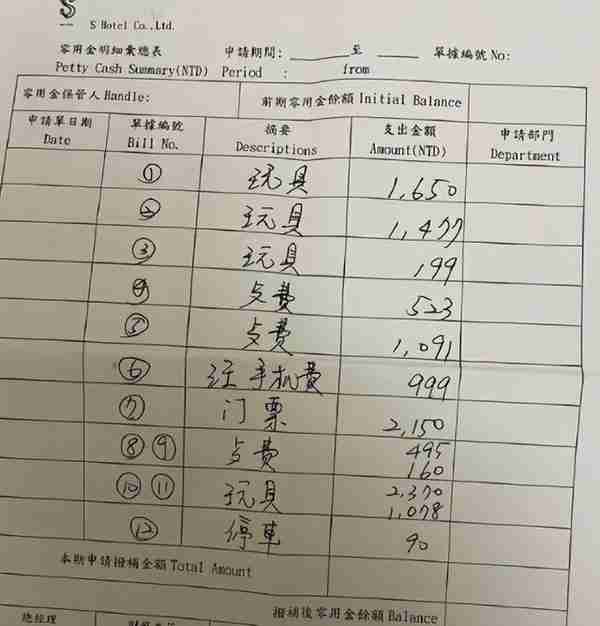 S
S Hotel Co.,Ltd.
零用金明細彙總表 申請期間: 至 單據編號 No:
Petty Cash Summary(NTD) Period : from
零用金保管人 Handle: 前期零用金餘額 Initial Balance
申請單日期 單據編號 摘要 支出金額 申請部門
Date Bill No. Descriptions Amount(NTD) Department
① 玩具 1,650
② 玩具 1,477
③ 玩具 199
④ 歺費 523
⑤ 歺費 1,091
⑥ 手机費 999
⑦ 门票 2,150
⑧ ⑨ 歺費 495
160
⑩ ⑪ 玩具 2,370
1,078
⑫ 停車 90
本期申請撥補金額 Total Amount
撥補後零用金餘額 Balance
總經理